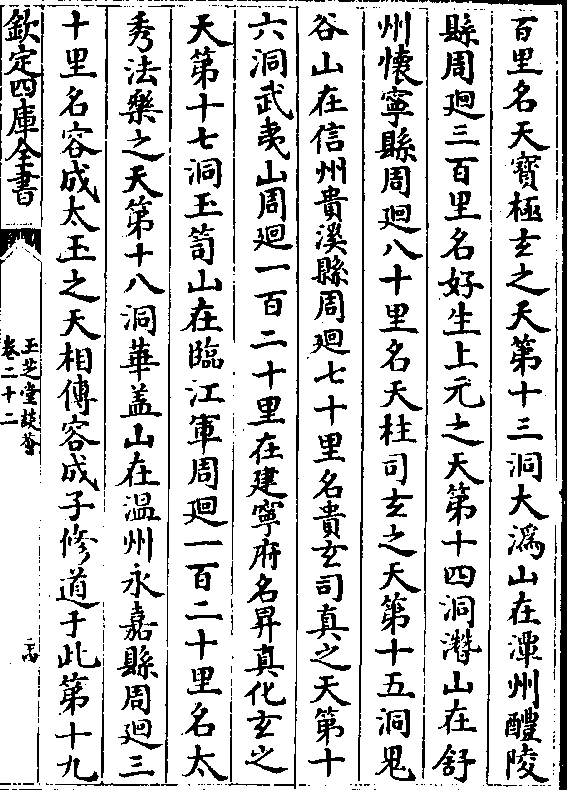 百里名天寶極玄之天第十三洞大溈山在潭州醴陵
縣周廻三百里名好生上元之天第十四洞濳山在舒
州懷寧縣周廻八十里名天柱司玄之天第十五洞鬼
谷山在信州貴溪縣周廻七十里名貴玄司真之天第十
六洞武夷山周廻一百二十里在建寧府名昇真化玄之
天第十七洞玉笥山在臨江軍周廻一百二十里名太
秀法樂之天第十八洞華盖山在温州永嘉縣周廻三
十里名容成太玉之天相傳容成子修道于此第十九
欽定四庫全書
玉芝堂談薈
卷二十二